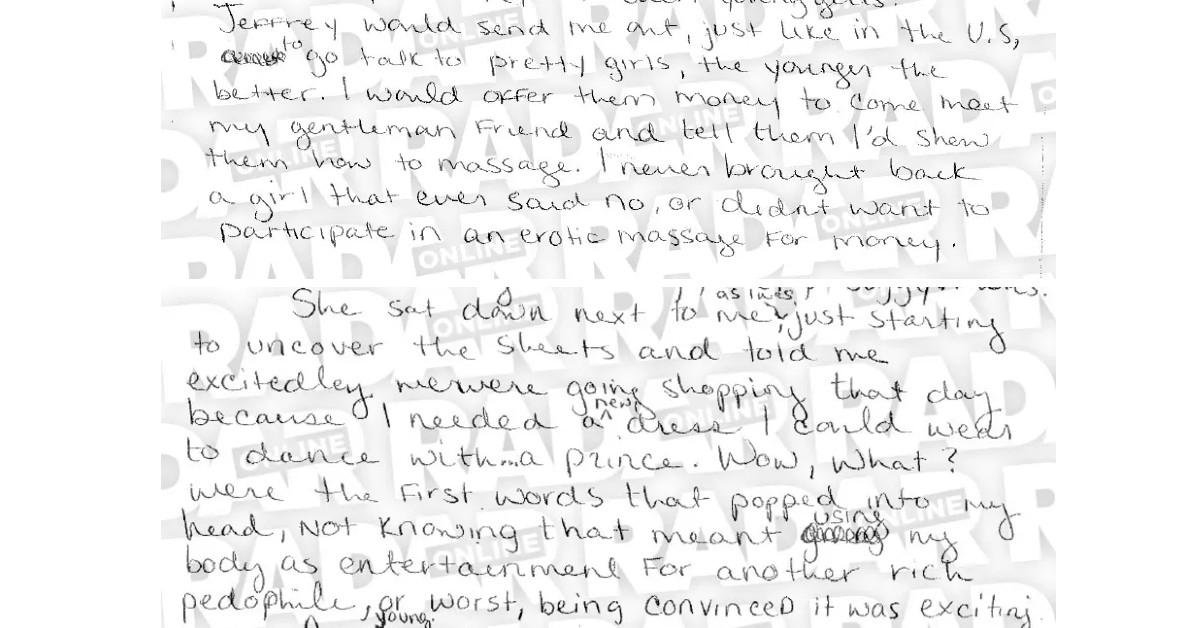 Jeffrey would send me out, just like in the U.S,
to go talk to pretty girls, the younger the
better. I would offer them money to come meet
my gentleman friend and tell them I'd show
them how to massage. I never brought back
a girl that ever said no, or didnt want to
participate in an erotic massage for money.
She sat down next to me, just starting
to uncover the sheets and told me
excitedley wewere going shopping that day
because I needed a new dress I could wear
to dance with a prince. Wow, what?
were the first words that popped into my
head, not knowing that meant using my
body as entertainment for another rich
pedophile, or worst, being convinced it was exciting.
young
RADAR ONLINE